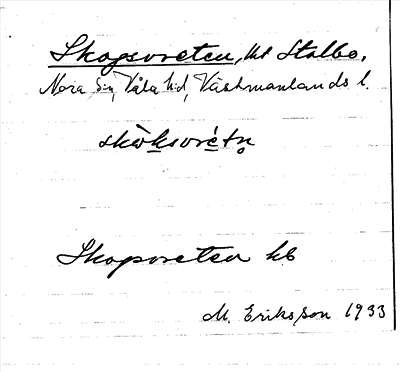 Skogsvreten, kt Stalbo,
Nora sn, Våla hd, Västmanlands l.
skòksvrétn̥
Skogsvreten kb
M. Eriksson 1933